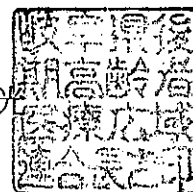 岐阜県後
期高齢者
医療広域
連合長印